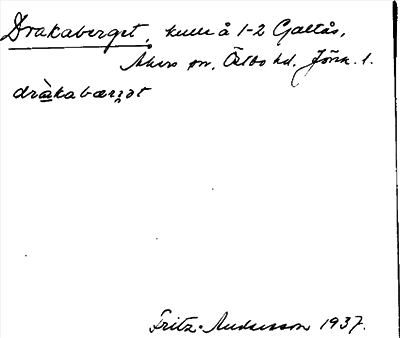 Drakaberget, kulle å 1-2 Galtås,
Åkers sn, Östbo hd, Jönk. l.
dràkabærɡət
Fritz Andersson 1937.